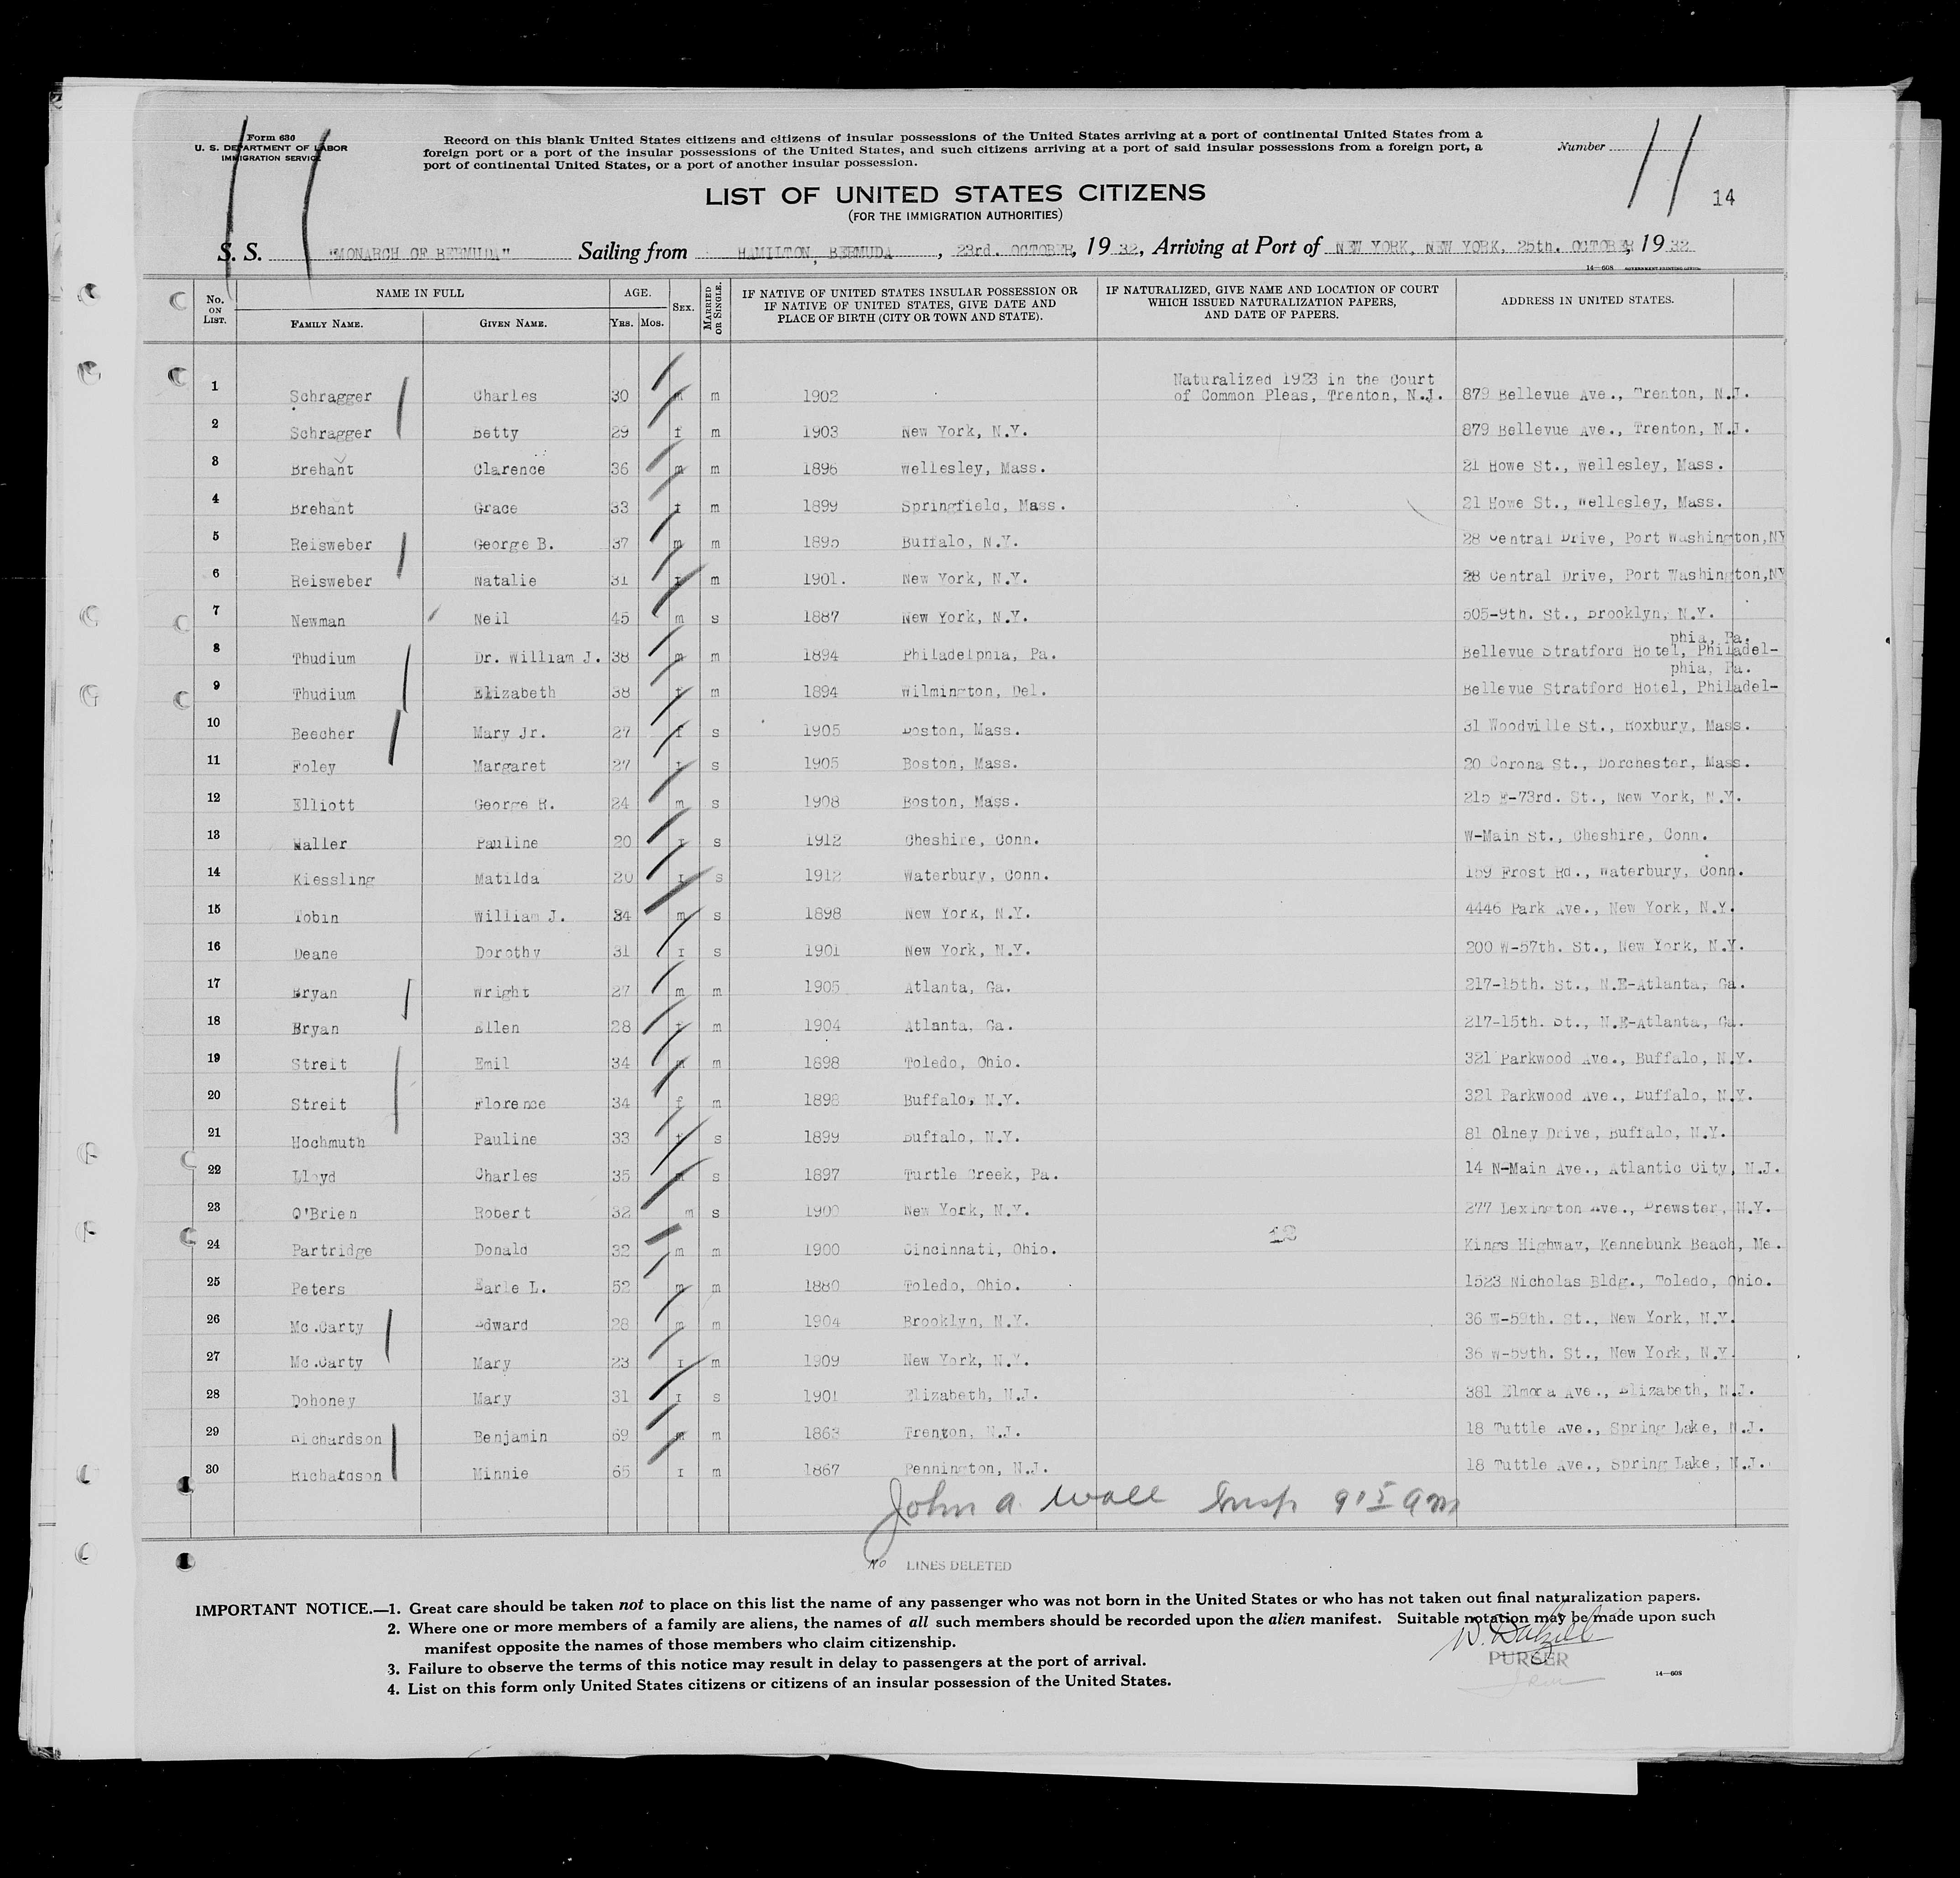 Form 630
U. S. DEPARTMENT OF LABOR
IMMIGRATION SERVICE
Record on this blank United States citizens and citizens of insular possessions of the United States arriving at a port of continental United States from a
foreign port or a port of the insular possessions of the United States, and such citizens arriving at a port of said insular possessions from a foreign port, a
port of continental United States, or a port of another insular possession.
Number 11
14
LIST OF UNITED STATES CITIZENS
(FOR THE IMMIGRATION AUTHORITIES)
S. S. "MONARCH OF BERMUDA" Sailing from HAMILTON, BERMUDA, 23rd. OCTOBER, 1932, Arriving at Port of NEW YORK, NEW YORK, 25th. OCTOBER, 1932
14—608 GOVERNMENT PRINTING OFFICE
No. ON LIST. NAME IN FULL FAMILY NAME. GIVEN NAME. AGE. YRS. MOS. SEX. MARRIED OR SINGLE. IF NATIVE OF UNITED STATES INSULAR POSSESSION OR IF NATIVE OF UNITED STATES, GIVE DATE AND PLACE OF BIRTH (CITY OR TOWN AND STATE). IF NATURALIZED, GIVE NAME AND LOCATION OF COURT WHICH ISSUED NATURALIZATION PAPERS, AND DATE OF PAPERS. ADDRESS IN UNITED STATES.
1 Schragger Charles 30 m m 1902 Naturalized 1923 in the Court of Common Pleas, Trenton, N.J. 879 Bellevue Ave., Trenton, N.J.
2 Schragger Betty 29 f m 1903 New York, N.Y. 879 Bellevue Ave., Trenton, N.J.
3 Brehant Clarence 36 m m 1896 Wellesley, Mass. 21 Howe St., Wellesley, Mass.
4 Brehant Grace 33 f m 1899 Springfield, Mass. 21 Howe St., Wellesley, Mass.
5 Reisweber George B. 37 m m 1895 Buffalo, N.Y. 28 Central Drive, Port Washington,NY
6 Reisweber Natalie 31 f m 1901. New York, N.Y. 28 Central Drive, Port Washington,NY
7 Newman Neil 45 m s 1887 New York, N.Y. 505-9th. St., Brooklyn, N.Y.
8 Thudium Dr. William J. 38 m m 1894 Philadelphia, Pa. Bellevue Stratford Hotel, Philadel-phia, Pa.
9 Thudium Elizabeth 38 f m 1894 Wilmington, Del. Bellevue Stratford Hotel, Philadel-phia, Pa.
10 Beecher Mary Jr. 27 f s 1905 Boston, Mass. 31 Woodville St., Roxbury, Mass.
11 Foley Margaret 27 f s 1905 Boston, Mass. 20 Corona St., Dorchester, Mass.
12 Elliott George R. 24 m s 1908 Boston, Mass. 215 E-73rd. St., New York, N.Y.
13 Waller Pauline 20 f s 1912 Cheshire, Conn. W-Main St., Cheshire, Conn.
14 Kiessling Matilda 20 f s 1912 Waterbury, Conn. 159 Frost Rd., Waterbury, Conn.
15 Tobin William J. 34 m s 1898 New York, N.Y. 4446 Park Ave., New York, N.Y.
16 Deane Dorothy 31 f s 1901 New York, N.Y. 200 W-57th. St., New York, N.Y.
17 Bryan Wright 27 m m 1905 Atlanta, Ga. 217-15th. St., N.E-Atlanta, Ga.
18 Bryan Ellen 28 f m 1904 Atlanta, Ga. 217-15th. St., N.E-Atlanta, Ga.
19 Streit Emil 34 m m 1898 Toledo, Ohio. 321 Parkwood Ave., Buffalo, N.Y.
20 Streit Florence 34 f m 1898 Buffalo, N.Y. 321 Parkwood Ave., Buffalo, N.Y.
21 Hochmuth Pauline 33 f s 1899 Buffalo, N.Y. 81 Olney Drive, Buffalo, N.Y.
22 Lloyd Charles 35 m s 1897 Turtle Creek, Pa. 14 N-Main Ave., Atlantic City, N.J.
23 O'Brien Robert 32 m s 1900 New York, N.Y. 277 Lexington Ave., Brewster, N.Y.
24 Partridge Donald 32 m m 1900 Cincinnati, Ohio. Kings Highway, Kennebunk Beach, Me.
25 Peters Earle L. 52 m m 1880 Toledo, Ohio. 1523 Nicholas Bldg., Toledo, Ohio.
26 Mc.Carty Edward 28 m m 1904 Brooklyn, N.Y. 36 W-59th. St., New York, N.Y.
27 Mc.Carty Mary 23 f m 1909 New York, N.Y. 36 W-59th. St., New York, N.Y.
28 Dohoney Mary 31 f s 1901 Elizabeth, N.J. 381 Elmora Ave., Elizabeth, N.J.
29 Richardson Benjamin 69 m m 1863 Trenton, N.J. 18 Tuttle Ave., Spring Lake, N.J.
30 Richardson Minnie 65 f m 1867 Pennington, N.J. 18 Tuttle Ave., Spring Lake, N.J.
John A. Wall Insp 915 am
No LINES DELETED
IMPORTANT NOTICE.—1. Great care should be taken not to place on this list the name of any passenger who was not born in the United States or who has not taken out final naturalization papers.
2. Where one or more members of a family are aliens, the names of all such members should be recorded upon the alien manifest. Suitable notation may be made upon such
manifest opposite the names of those members who claim citizenship.
3. Failure to observe the terms of this notice may result in delay to passengers at the port of arrival.
4. List on this form only United States citizens or citizens of an insular possession of the United States.
PURSER
14—608